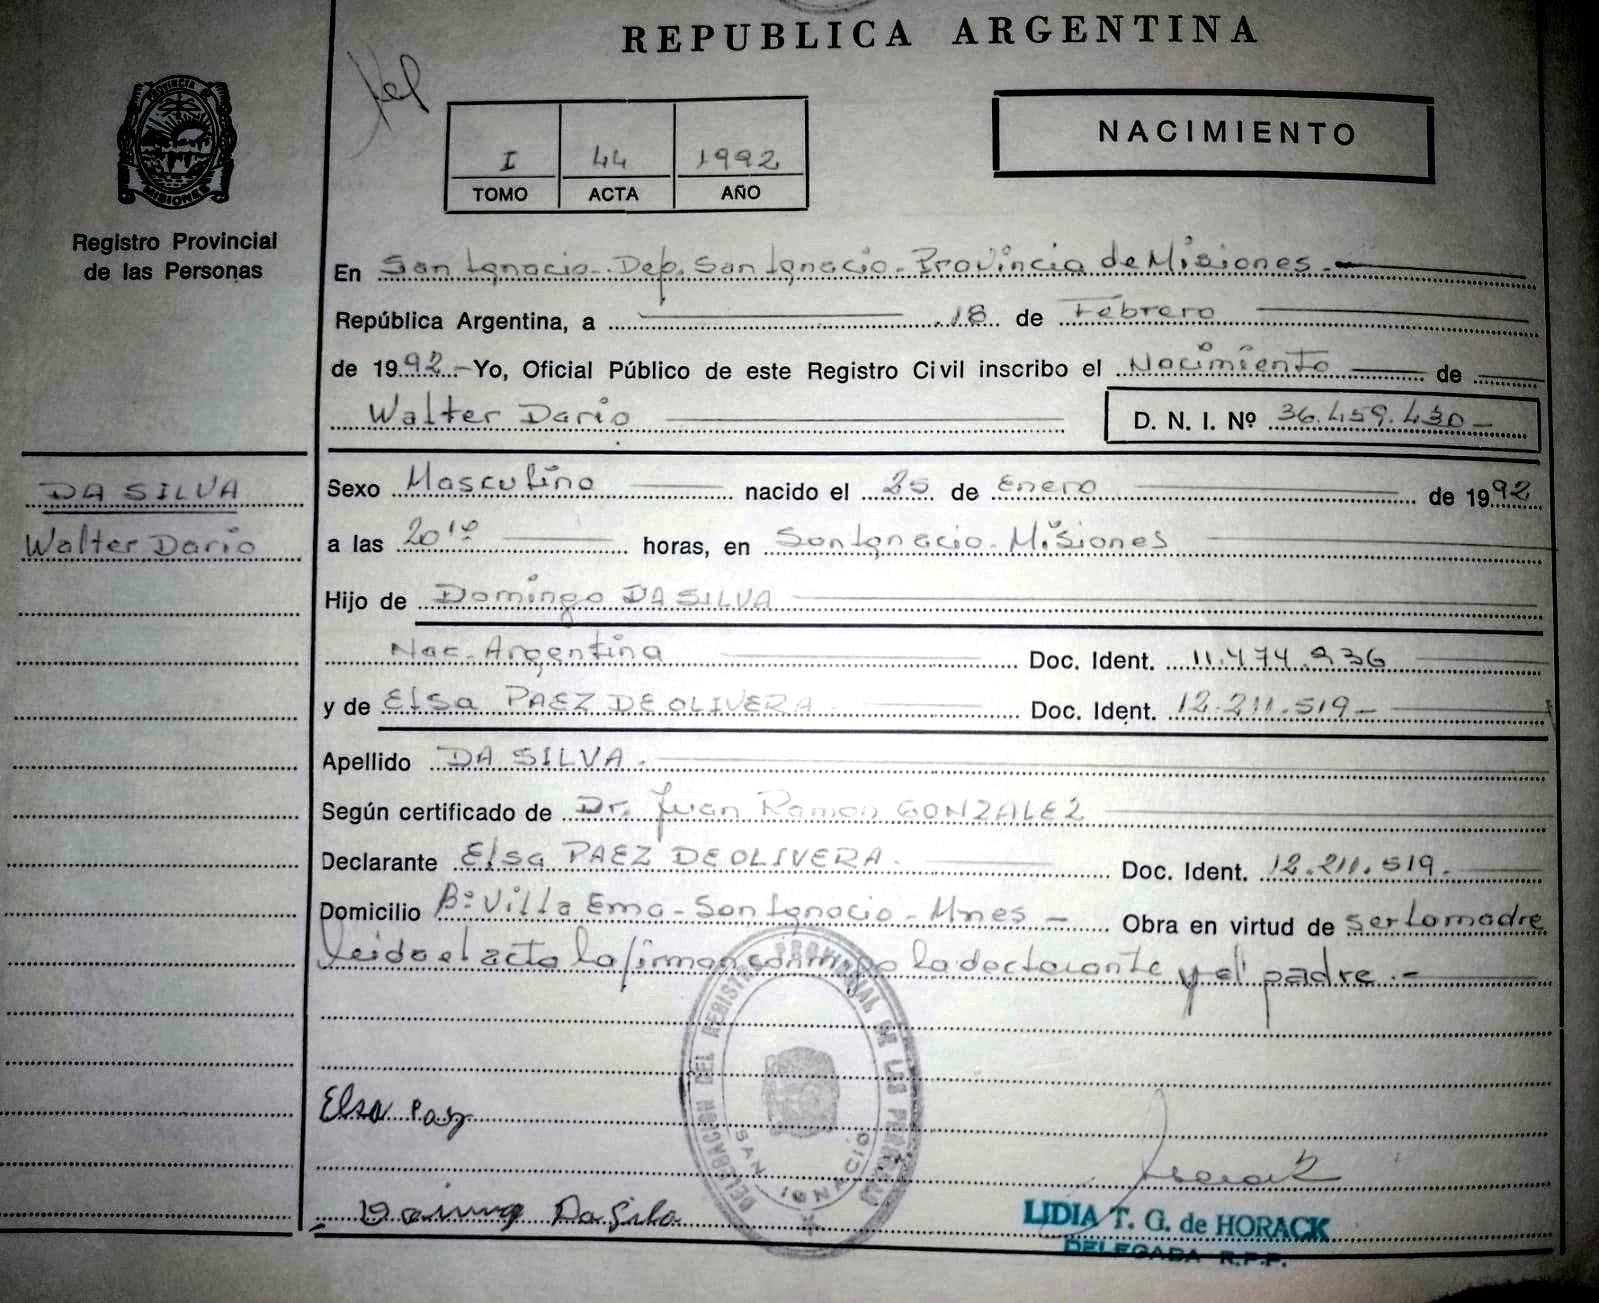 REPUBLICA ARGENTINA
PROVINCIA DE
MISIONES
Registro Provincial
de las Personas
I 44 1992
TOMO ACTA AÑO
NACIMIENTO
En San Ignacio - Dep. San Ignacio - Provincia de Misiones.-
República Argentina, a 18 de Febrero
de 1992.- Yo, Oficial Público de este Registro Civil inscribo el Nacimiento de
Walter Dario D. N. I. Nº 36.459.430-
DA SILVA
Walter Dario
Sexo Masculino nacido el 25 de Enero de 1992
a las 20 horas, en San Ignacio - Misiones
Hijo de Domingo DA SILVA
Nac. Argentina Doc. Ident. 11.474.936
y de Elsa PAEZ DE OLIVERA Doc. Ident. 12.211.519-
Apellido DA SILVA.
Según certificado de Dr. Juan Ramon GONZALEZ
Declarante Elsa PAEZ DE OLIVERA. Doc. Ident. 12.211.519.
Domicilio Bº Villa Ema - San Ignacio - Mnes - Obra en virtud de ser la madre
leido el acta la firman conmigo la declarante y el padre.-
DELEGACION DEL REGISTRO PROVINCIAL DE LAS PERSONAS
SAN IGNACIO
Elsa Paez
Da Silva
LIDIA T. G. de HORACK
DELEGADA R.P.P.